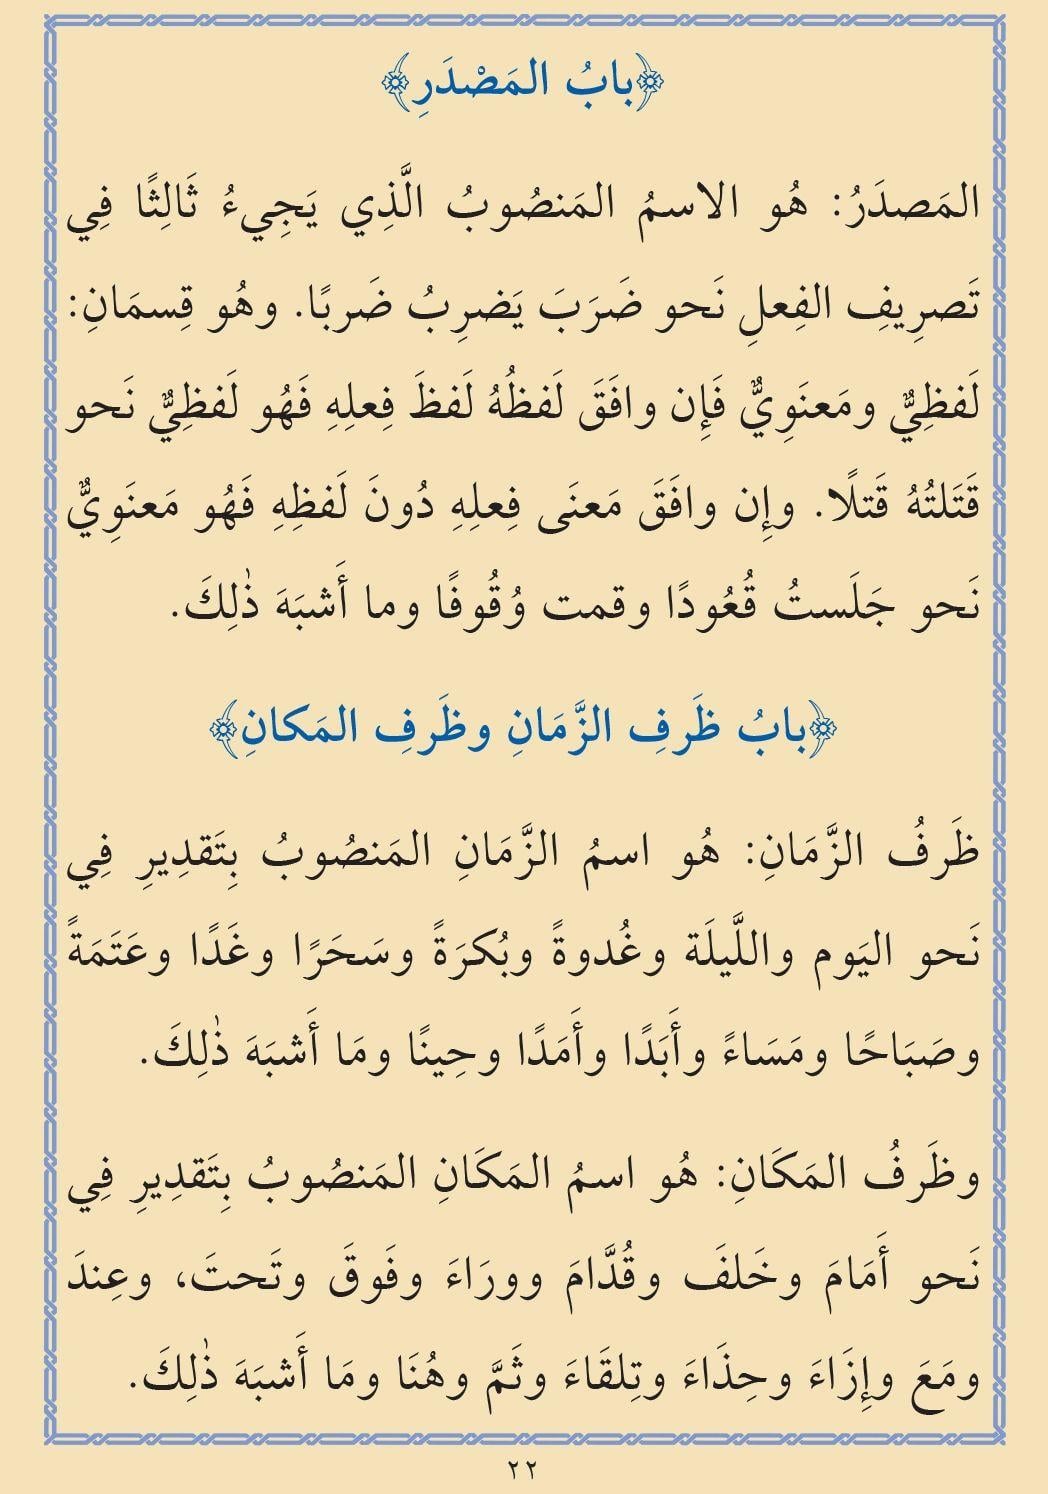 ﴿بابُ المَصْدَرِ﴾
المَصدَرُ: هُو الاسمُ المَنصُوبُ الَّذِي يَجِيءُ ثَالِثًا فِي
تَصرِيفِ الفِعلِ نَحو ضَرَبَ يَضرِبُ ضَربًا. وهُو قِسمَانِ:
لَفظِيٌّ ومَعنَوِيٌّ فَإِن وافَقَ لَفظُهُ لَفظَ فِعلِهِ فَهُو لَفظِيٌّ نَحو
قَتَلتُهُ قَتلًا. وإِن وافَقَ مَعنَى فِعلِهِ دُونَ لَفظِهِ فَهُو مَعنَوِيٌّ
نَحو جَلَستُ قُعُودًا وقمت وُقُوفًا وما أَشبَهَ ذٰلِكَ.
﴿بابُ ظَرفِ الزَّمَانِ وظَرفِ المَكانِ﴾
ظَرفُ الزَّمَانِ: هُو اسمُ الزَّمَانِ المَنصُوبُ بِتَقدِيرِ فِي
نَحو اليَوم واللَّيلَة وغُدوةً وبُكرَةً وسَحَرًا وغَدًا وعَتَمَةً
وصَبَاحًا ومَسَاءً وأَبَدًا وأَمَدًا وحِينًا ومَا أَشبَهَ ذٰلِكَ.
وظَرفُ المَكَانِ: هُو اسمُ المَكَانِ المَنصُوبُ بِتَقدِيرِ فِي
نَحو أَمَامَ وخَلفَ وقُدَّامَ وورَاءَ وفَوقَ وتَحتَ، وعِندَ
ومَعَ وإِزَاءَ وحِذَاءَ وتِلقَاءَ وثَمَّ وهُنَا ومَا أَشبَهَ ذٰلِكَ.
٢٢